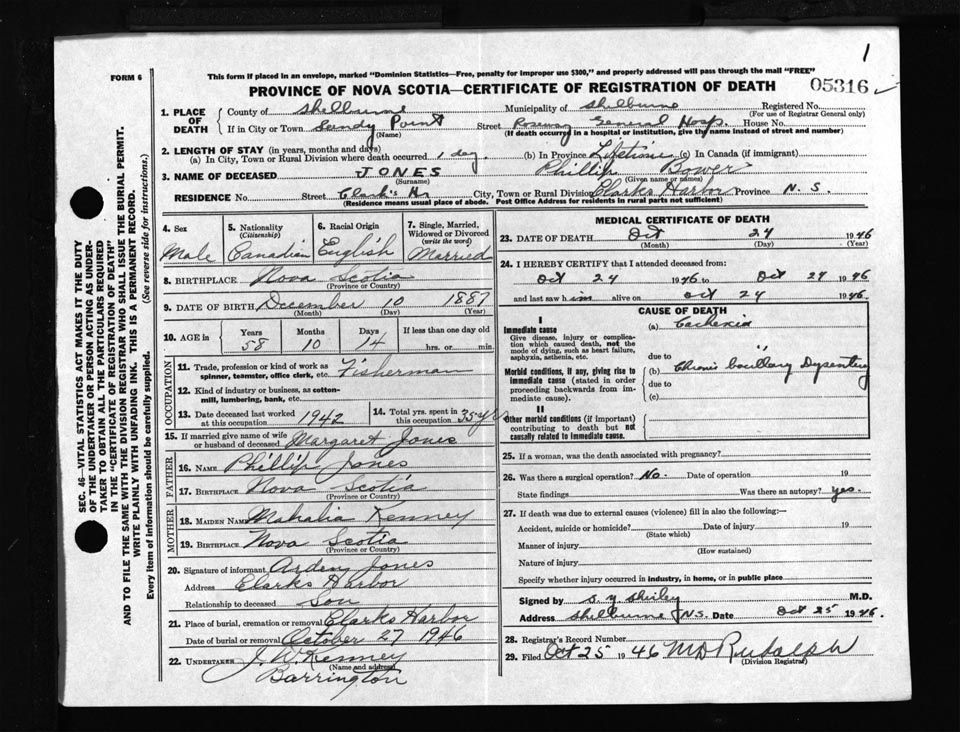 1
FORM 6
This form if placed in an envelope, marked "Dominion Statistics—Free, penalty for improper use $300," and properly addressed will pass through the mail "FREE"
PROVINCE OF NOVA SCOTIA—CERTIFICATE OF REGISTRATION OF DEATH
05316
SEC. 46—VITAL STATISTICS ACT MAKES IT THE DUTY
OF THE UNDERTAKER OR PERSON ACTING AS UNDER-
TAKER TO OBTAIN ALL THE PARTICULARS REQUIRED
IN THE "CERTIFICATE OF REGISTRATION OF DEATH"
AND TO FILE THE SAME WITH THE DIVISION REGISTRAR WHO SHALL ISSUE THE BURIAL PERMIT.
WRITE PLAINLY WITH UNFADING INK. THIS IS A PERMANENT RECORD.
Every item of information should be carefully supplied. (See reverse side for instructions.)
1. PLACE OF DEATH
County of Shelburne Municipality of Shelburne Registered No.
(For use of Registrar General only)
If in City or Town Sandy Point Street Roseway General Hosp. House No.
(Name) (If death occurred in a hospital or institution, give its name instead of street and number)
2. LENGTH OF STAY (in years, months and days)
(a) In City, Town or Rural Division where death occurred 1 day. (b) In Province Lifetime (c) In Canada (if immigrant)
3. NAME OF DECEASED JONES Phillip Bower
(Surname) (Given name or names)
RESIDENCE No. Street Clark's Hr City, Town or Rural Division Clarks Harbor Province N. S.
(Residence means usual place of abode. Post Office Address for residents in rural parts not sufficient)
4. Sex
Male
5. Nationality
(Citizenship)
Canadian
6. Racial Origin
English
7. Single, Married,
Widowed or Divorced
(write the word)
Married
8. BIRTHPLACE Nova Scotia
(Province or Country)
9. DATE OF BIRTH December 10 1887
(Month) (Day) (Year)
10. AGE in
Years Months Days If less than one day old
58 10 14 hrs. or min.
OCCUPATION
11. Trade, profession or kind of work as
spinner, teamster, office clerk, etc. Fisherman
12. Kind of industry or business, as cotton-
mill, lumbering, bank, etc.
13. Date deceased last worked
at this occupation 1942
14. Total yrs. spent in
this occupation 35 yrs
15. If married give name of wife
or husband of deceased Margaret Jones
FATHER
16. NAME Phillip Jones
17. BIRTHPLACE Nova Scotia
(Province or Country)
MOTHER
18. MAIDEN NAME Mahalia Kenney
19. BIRTHPLACE Nova Scotia
(Province or Country)
20. Signature of informant Arden Jones
Address Clarks Harbor
Relationship to deceased Son
21. Place of burial, cremation or removal Clarks Harbor
Date of burial or removal October 27 1946
22. UNDERTAKER J. W. Kenney
(Name and address)
Barrington
MEDICAL CERTIFICATE OF DEATH
23. DATE OF DEATH Oct 24 1946
(Month) (Day) (Year)
24. I HEREBY CERTIFY that I attended deceased from:
Oct 24 1946 to Oct 24 1946
and last saw him alive on Oct 24 1946.
CAUSE OF DEATH
I
Immediate cause
Give disease, injury or complica-
tion which caused death, not the
mode of dying, such as heart failure,
asphyxia, asthenia, etc.
(a) Cachexia
due to
Morbid conditions, if any, giving rise to
immediate cause (stated in order
proceeding backwards from im-
mediate cause).
(b) Chronic bacillary Dysentery
due to
(c)
II
Other morbid conditions (if important)
contributing to death but not
causally related to immediate cause.
25. If a woman, was the death associated with pregnancy?
26. Was there a surgical operation? No. Date of operation 19
State findings Was there an autopsy? yes.
27. If death was due to external causes (violence) fill in also the following:—
Accident, suicide or homicide? Date of injury 19
(State which)
Manner of injury
(How sustained)
Nature of injury
Specify whether injury occurred in industry, in home, or in public place
Signed by S. Y. Shirley M.D.
Address Shelburne N.S. Date Oct 25 1946.
28. Registrar's Record Number
29. Filed Oct 25 1946 MD Rudolph
(Division Registrar)